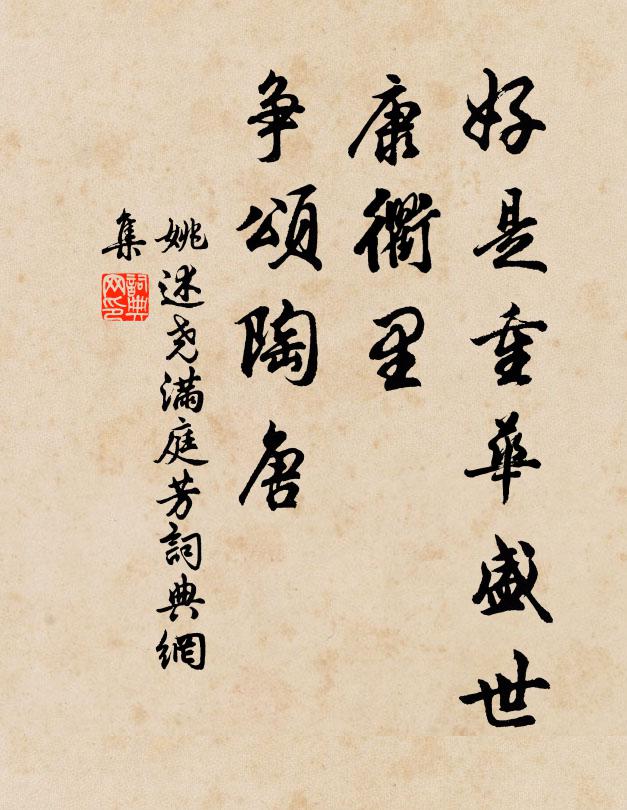 好是重華盛世
康衢里
争頌陶唐
姚述尧滿庭芳詞典網
集
詞典
网印